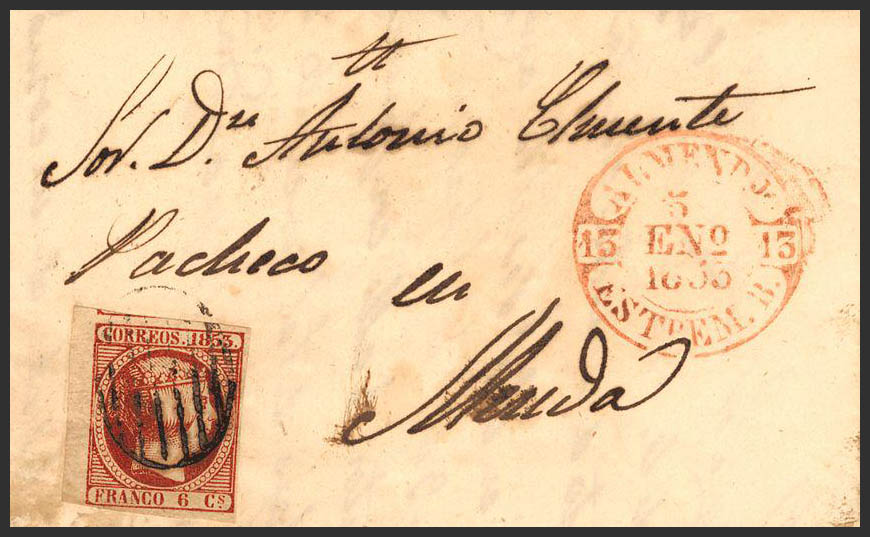 tt
Sor. Dn. Antonio Clemente
Pacheco en
Merida
ALMENDJ.
5
ENO
1853
13 13
ESTREM. B.
CORREOS. 1853.
FRANCO 6 Cs